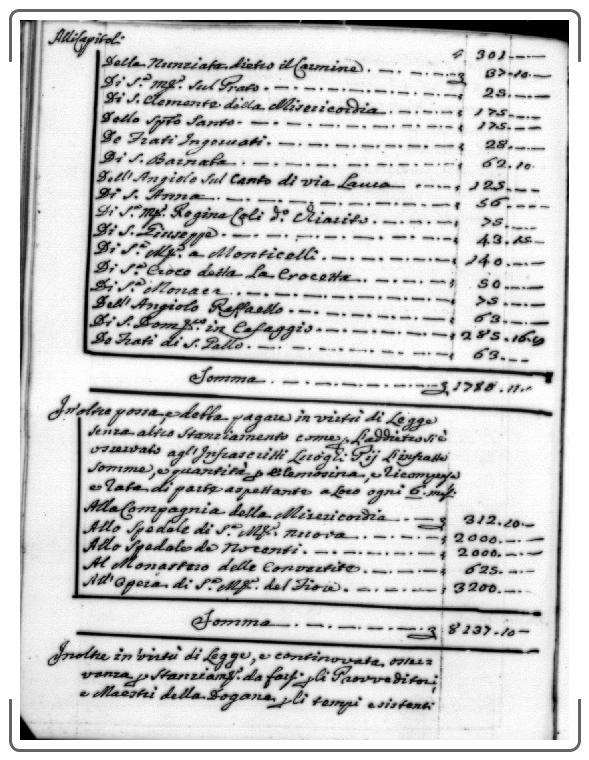 Alli Capitoli
Della Nunziata dietro il Carmine 301
Di S.ª M.ª sul Prato 37.10
Di S. Clemente della Misericordia 25
Dello Sp.to Santo 175
De Frati Ingesuati 175
Di S. Barnaba 28
Dell'Angiolo sul Canto di via Laura 62.10
Di S. Anna 125
Di S.ª M.ª Regina Celi d.º Chiarito 56
Di S. Giuseppe 75
Di S.ª M.ª a Monticelli 43.15
Di S.ª Croce detta La Crocetta 140
Di S.ª Monaca 50
Dell'Angiolo Raffaello 75
Di S. Dom.co in Cafaggio 63
De Frati di S. Gallo 285.16.
63
Somma 1788.11.
In oltre possa, e debba pagare in virtù di Legge
senza altro Stanziamento come p L'addietro si è
osservato agl'Infrascritti Luoghi Pij L'infratte
Somme, e quantità p elemosina, e ricompensa
e rata di parte aspettante a Loro ogni 6. m.si
Alla Compagnia della Misericordia 312.10
Allo Spedale di S.ª M.ª Nuova 2000
Allo Spedale de Nocenti 2000
Al Monastero delle Convertite 625
All'Opera di S.ª M.ª del Fiore 3200
Somma 8137.10
Inoltre in virtù di Legge, e continovata osser-
vanza p Stanziam.ti da farsi p li Provveditori,
e Maestri della Dogana p li tempi esistenti